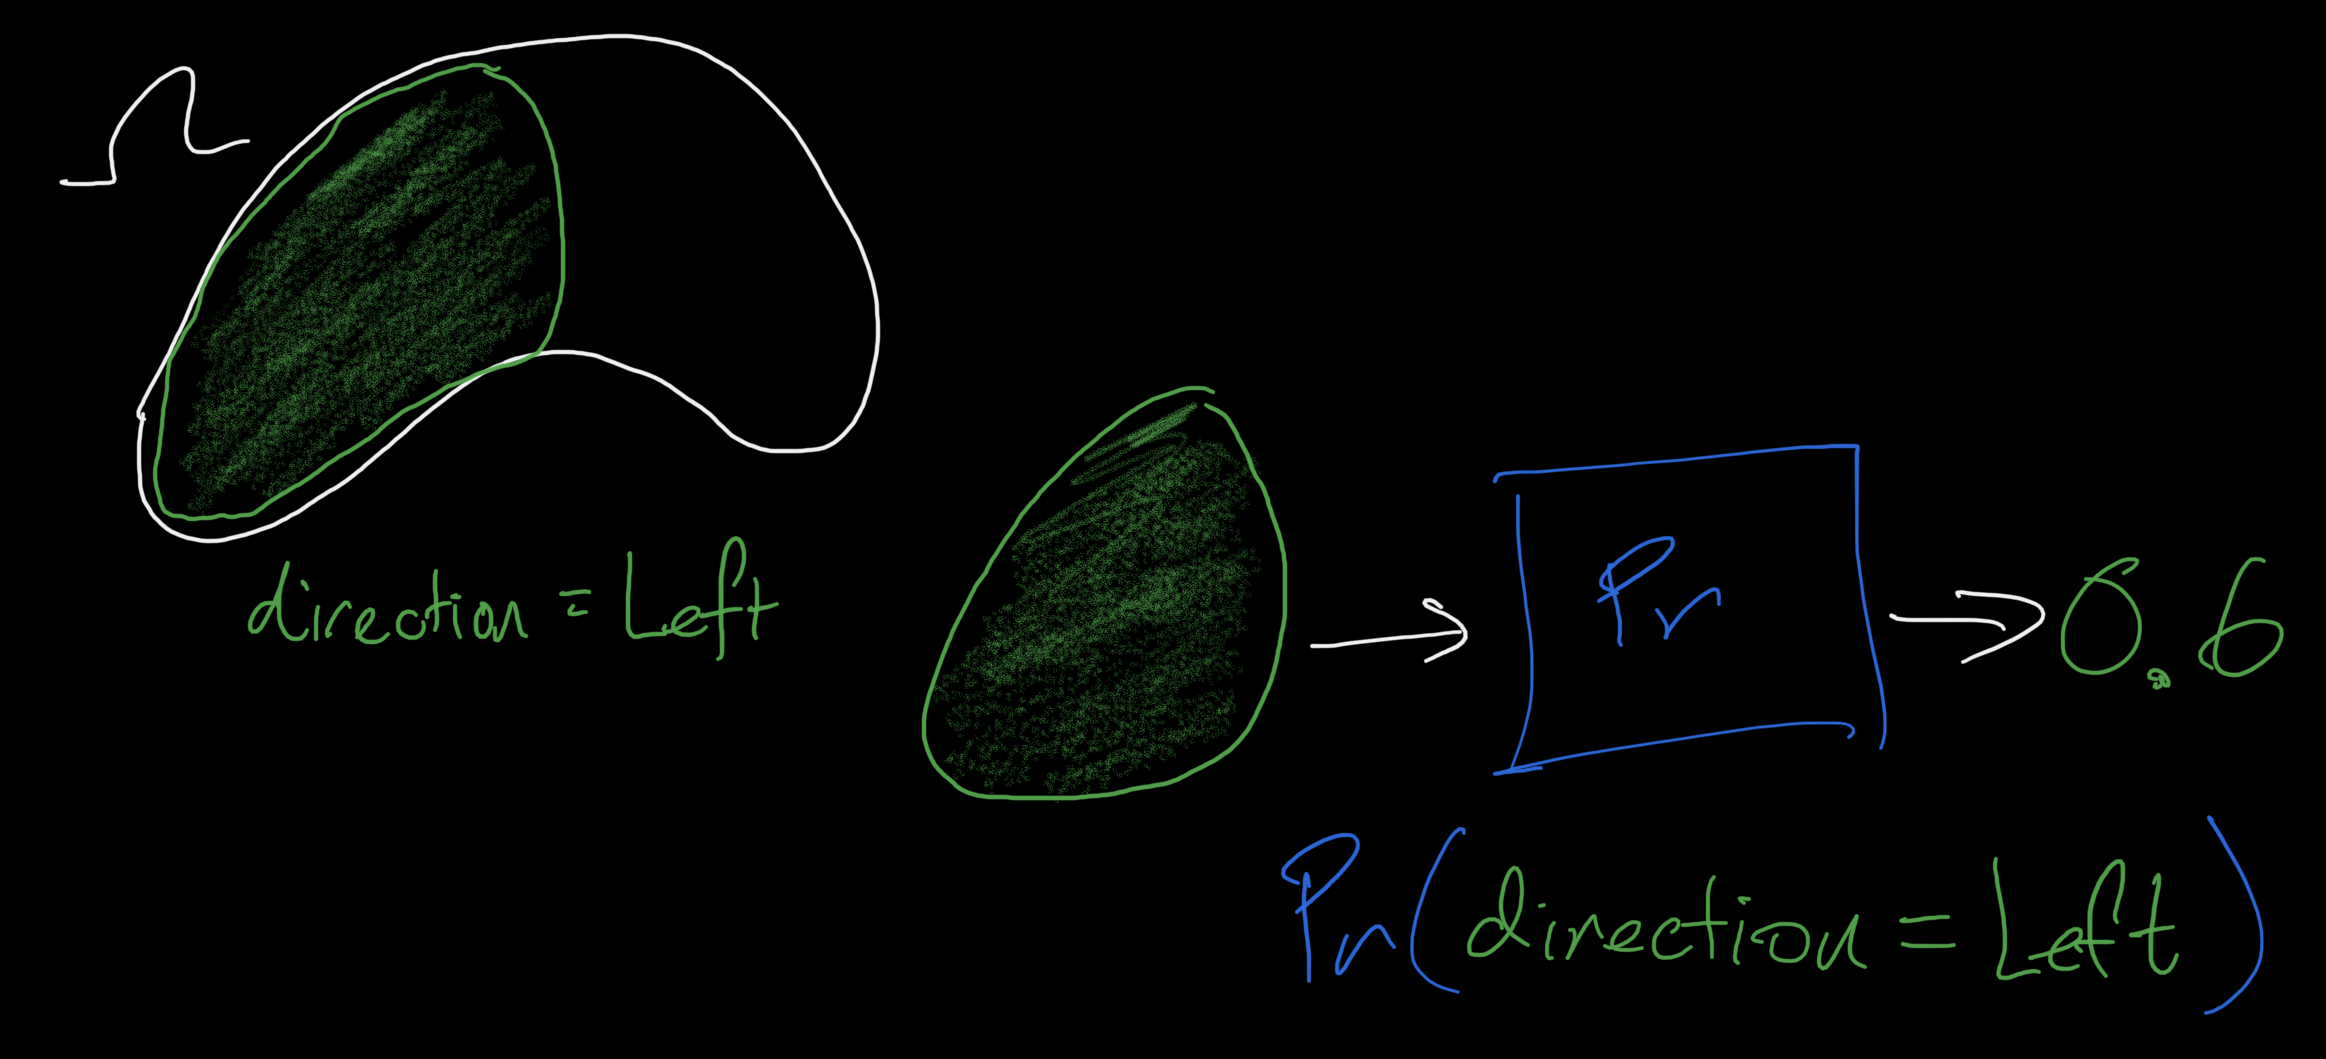 Ω
direction = Left
Pr
0.6
Pr(direction = Left)